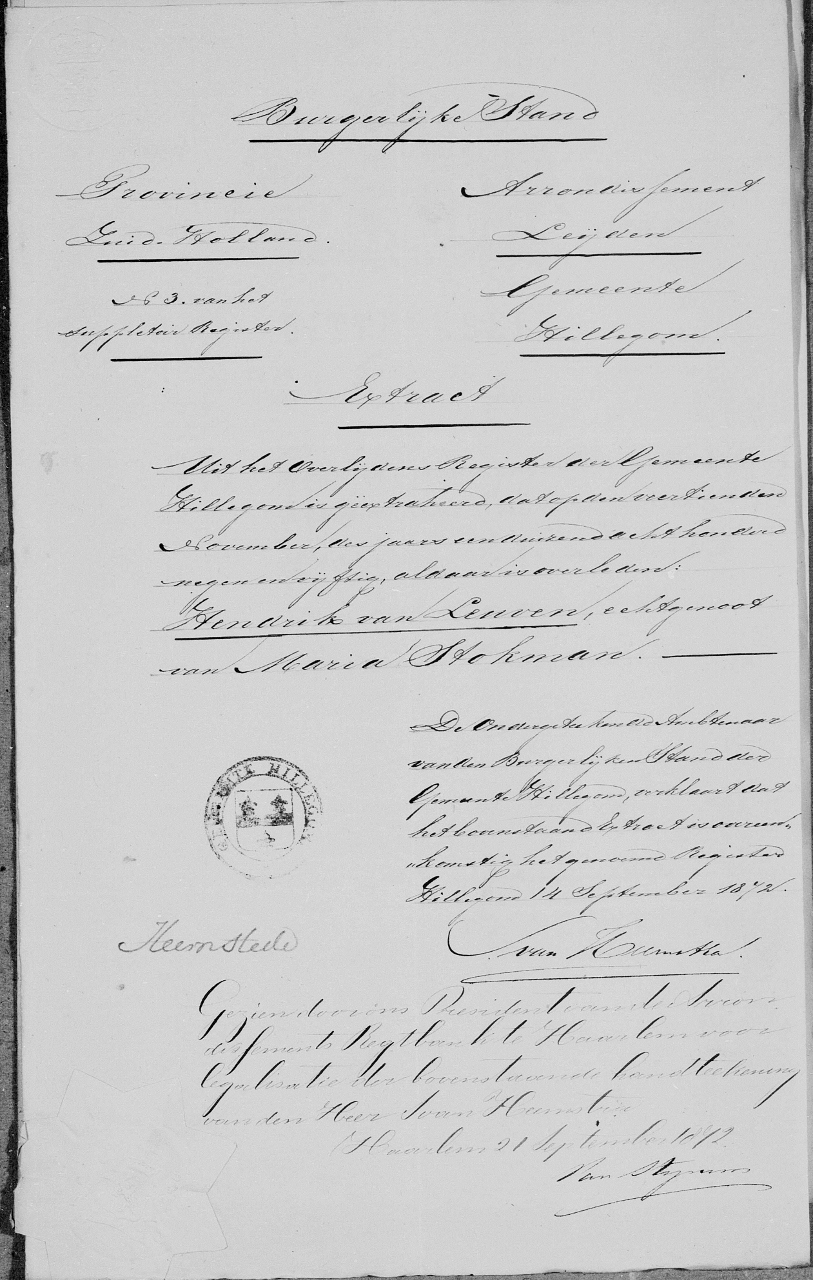 Burgerlijke Stand
Provincie
Zuid-Holland.
No 3. van het
suppletoir Register.
Arrondissement
Leijden
Gemeente
Hillegom.
Extract
Uit het Overlijdens Register der Gemeente
Hillegom is geëxtraheerd, dat op den veertienden
November, des jaars een duizend acht honderd
negen en vijftig, aldaar is overleden:
Hendrik van Leuven, echtgenoot
van Maria Stokman.
De Ondergetekende Ambtenaar
van den Burgerlijken Stand der
Gemeente Hillegom, verklaart dat
het bovenstaand Extract is overeen-
komstig het genoemd Register
Hillegom 14 September 1872.
GEMEENTE HILLEGOM
Heemstede
Gezien door ons President van de Arron-
dissements Regtbank te Haarlem voor
legalisatie der bovenstaande handteekening
van den Heer
Haarlem 21 September 1872.